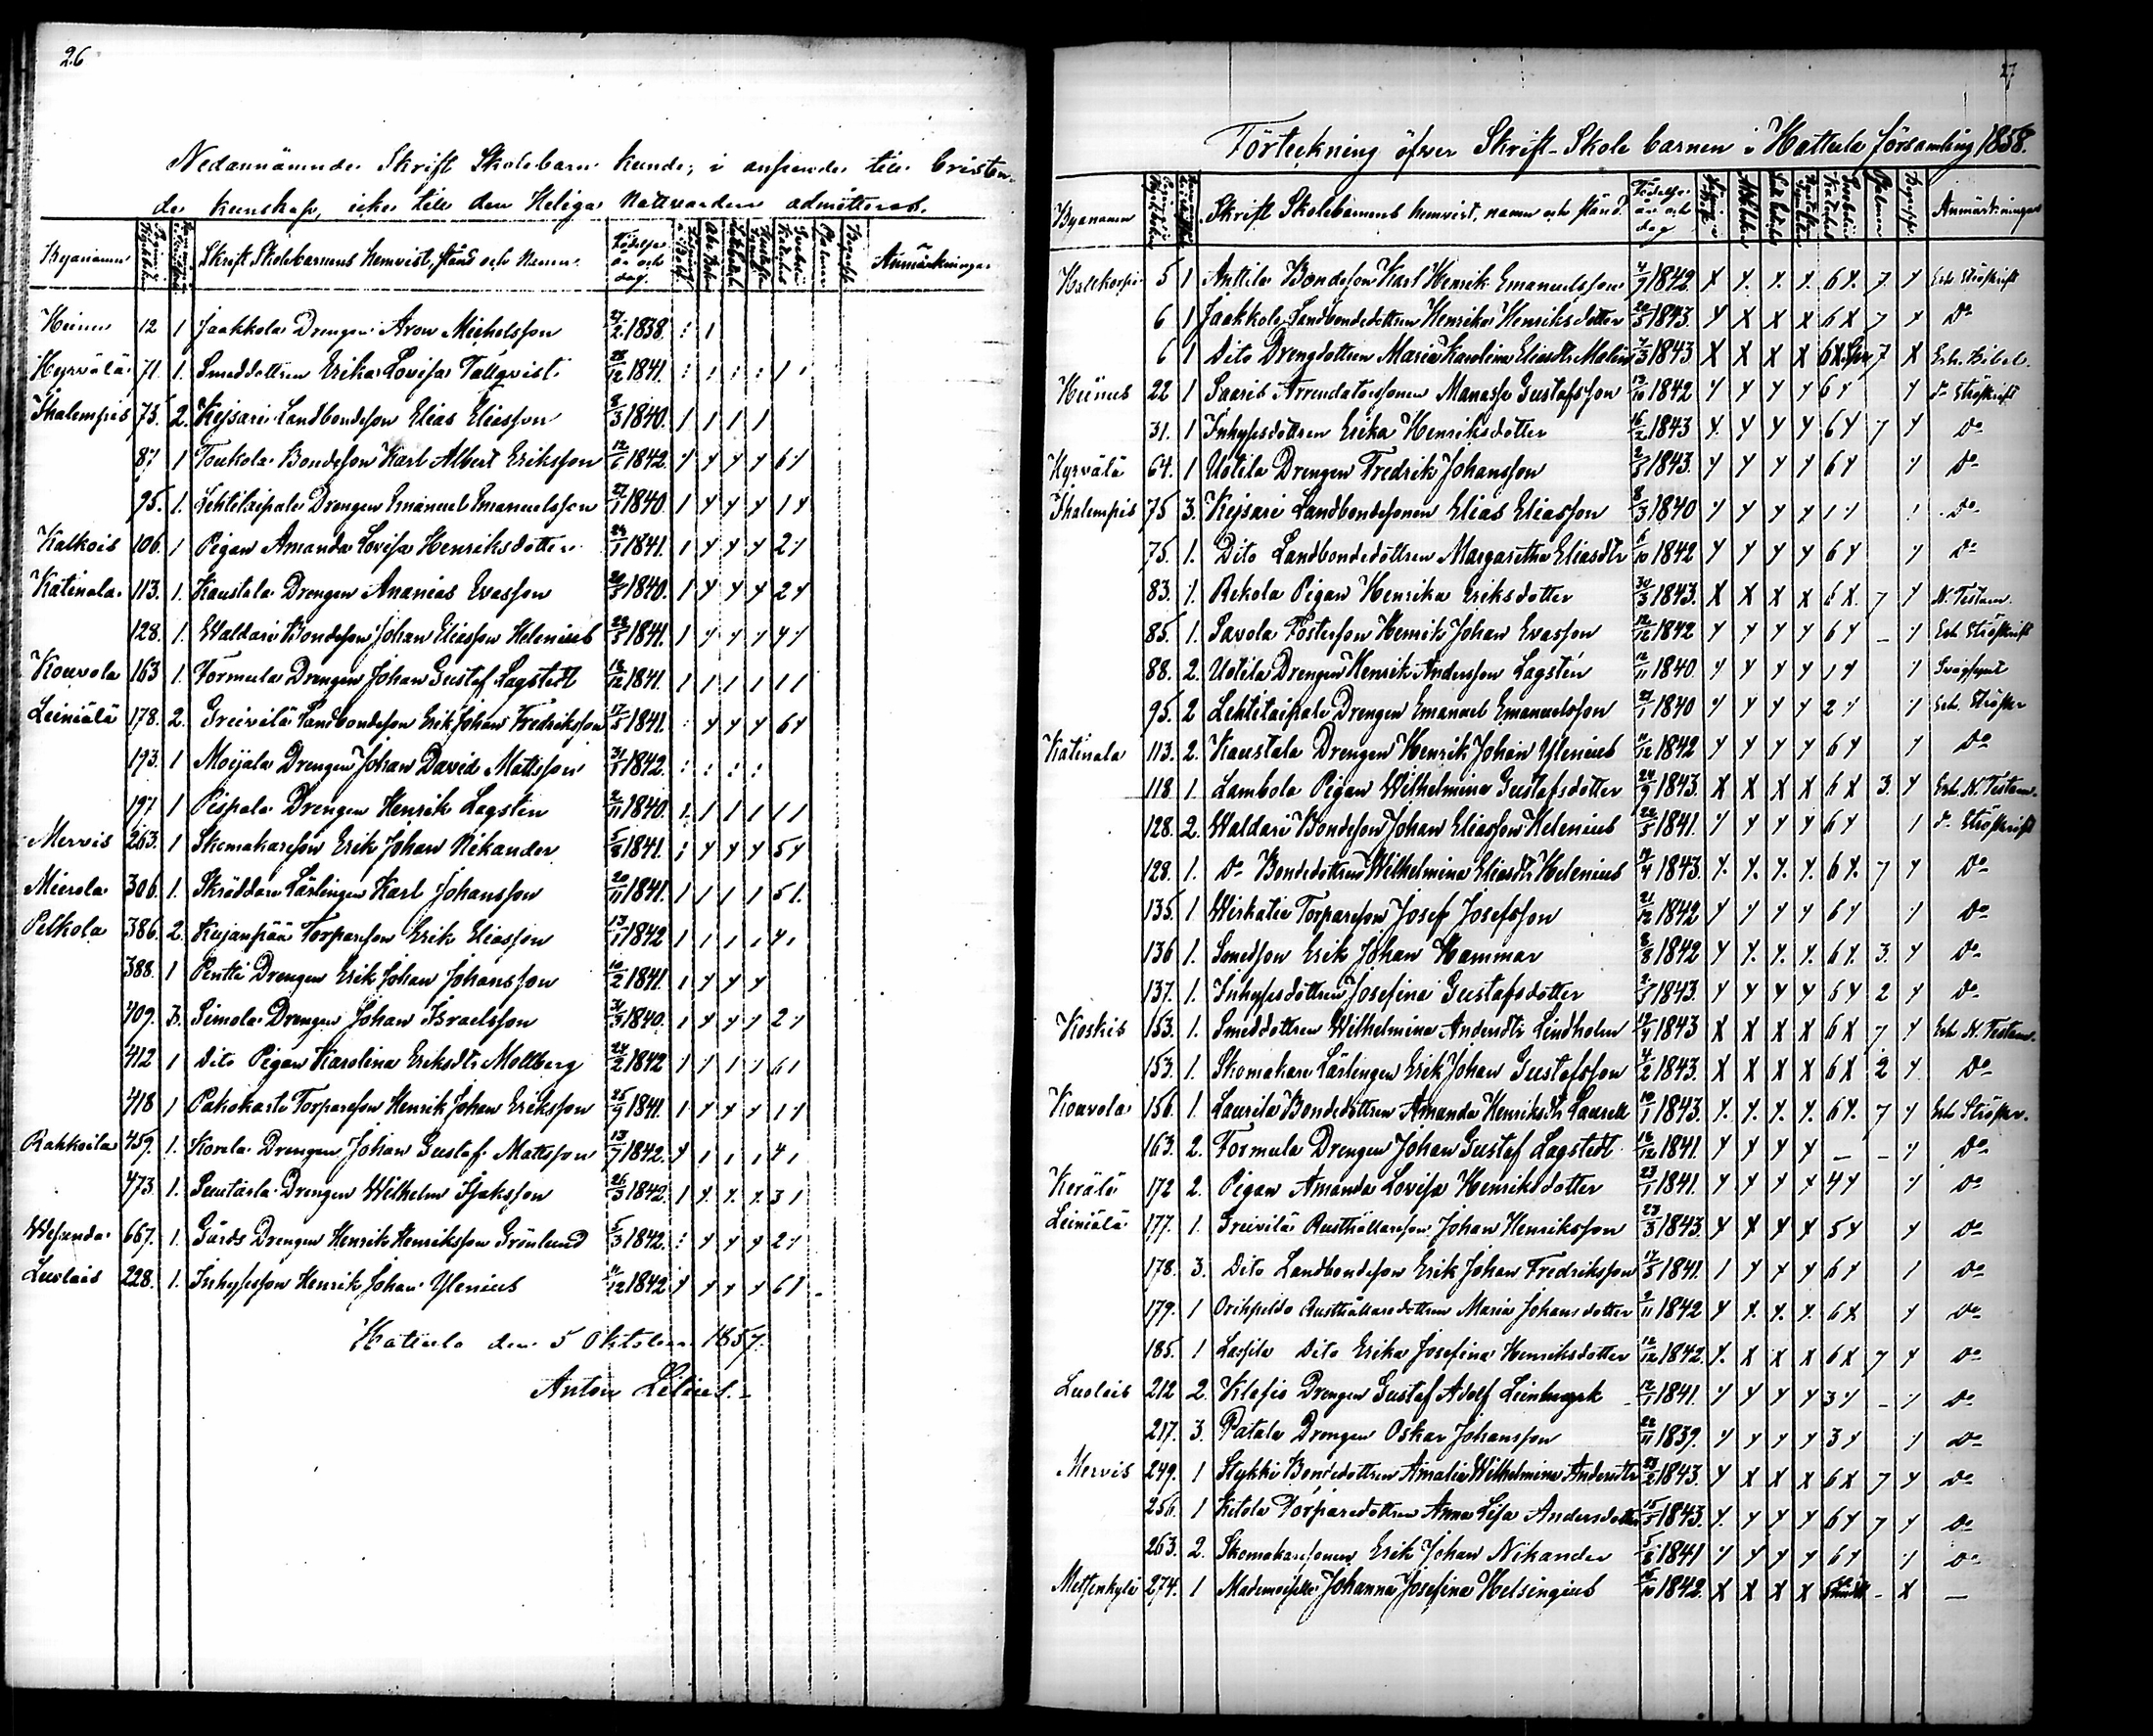 26
Nedannämnde Skrift Skolebarn kunde, i anseende till Cristen-
doms kunskap, icke till den Heliga Nattvarden admitteras.
Byanamn Skrift Skolebarnens Hemvist, stånd och Namn. Födelse år och dag. Anmärkningar
12 1 Jaakkola Drengen Aron Michelsson 27/2 1838.
Hyrvälä 71. 1. Smeddottren Erika Lovisa Tallqvist 28/12 1841.
Ihalempis 75. 2. Kejsari Landbondeson Elias Eliasson 8/3 1840. 1 1 1 1
87 1 Toukola Bondeson Karl Albert Eriksson 12/6 1842. y y y y 6 y
95. 1. Lehtilaipale Drengen Emanuel Emanuelsson 27/1 1840. 1 y y y 1 y
Kalkois 106. 1 Pigan Amanda Lovisa Henriksdotter 23/1 1841. 1 y y y 2 y
Katinala 113. 1. Kaustala Drengen Ananias Evasson 1840. 1 y y y 2 y
128. 1. Waldari Bondeson Johan Eliasson Helenius 28/5 1841. 1 y y y 4 y
Kouvola 163 1. Formula Drengen Johan Gustaf Lagstedt 18/12 1841. 1 1 1 1 1 1
Leiniälä 178. 2. Greivilä Landbondeson Erik Johan Fredriksson 17/5 1841. y y y 6 y
193. 1 Moijala Drengen Johan David Mattsson 31/1 1842.
197 1 Pispala Drengen Henrik Lagsten 2/11 1840. 1 1 1 1 1 1
Mervis 263. 1 Skomakareson Erik Johan Nikander 5/8 1841. y y y 5 y
Mierola 306. 1. Skräddare Lärlingen Karl Johansson 20/11 1841. 1 1 1 1 5 1.
Pelkola 386. 2. Kujanpää Torpareson Erik Eliasson 13/1 1842 1 1 1 1 4 1
388. 1 Pentti Drengen Erik Johan Johansson 10/2 1841. 1 y y y
409. 3. Simola Drengen Johan Israelsson 31/3 1840. 1 y y y 2 y
412 1 Dito Pigan Karolina Eriksdtr Mollberg 24/2 1842 1 1 1 1 6 1
418 1 Pakokarti Torpareson Henrik Johan Eriksson 25/9 1841. 1 y y y 1 y
Rahkoila 459. 1. Korela Drengen Johan Gustaf Mattsson 13/7 1842. y 1 1 1 4 1
473. 1. Suutarla Drengen Wilhelm Isaksson 26/3 1842. 1 y. y. y. 3 1
Wesunda 667. 1. Gårds Drengen Henrik Henriksson Grönlund 5/3 1842. y y y 2 y
Luolais 228. 1. Inhysesson Henrik Johan Ylenius 11/12 1842 y y y y 6 1
Hattula den 5 Oktober 1857.
Anton Lilius.
27
Förteckning öfwer Skrift-Skole barnen i Hattula församling 1858.
Byanamn Skrift Skolebarnens hemvist, namn och stånd. Födelse år och dag Psalmer Anmärkningar
5 1 Anttila Bondeson Karl Henrik Emanuelsson 4/7 1842 X y. y. y. 6 y. 7. y Erh. Ströskrift
6 1 Jaakkola Landbondedottren Henrika Henriksdotter 20/3 1843. y X X X 6 X 7 y Do
6 1 Dito Drengdottren Maria Karolina Eliasdtr Malin 1843 X X X X 6 X 7 X Erh. Bibel.
22 1 Saaris Arrendatorssonen Manasse Gustafsson 13/10 1842 y y y y 6 y y do Ströskrift
31. 1 Inhysesdottren Erika Henriksdotter 16/2 1843 y. y y y 6 y 7 y Do
Hyrvälä 64. 1 Uotila Drengen Fredrik Johansson 1843. y y y y 6 y y Do
Ihalempis 75 3. Kejsari Landbondesonen Elias Eliasson 8/3 1840 y y y y 1 y 1 Do
75. 1. Dito Landbondedottren Margaretha Eliasdtr 6/10 1842 y y y y 6 y y Do
83. 1. Rekola Pigan Henrika Eriksdotter 30/3 1843. X X X X 6 X. 7 y N. Testam.
85. 1. Savola Fosterson Henrik Johan Evasson 12/12 1842 y y y y 6 y – y Erh Ströskrift
88. 2. Uotila Drengen Henrik Andersson Lagstén 1840. y y y y 1 y y Svagsynt
95. 2 Lehtilaipale Drengen Emanuel Emanuelsson 27/1 1840 y y y y 2 y y Erh. Ströskr
Katinala 113. 2. Kaustala Drengen Henrik Johan Ylenius 11/12 1842 y y y y 6 y y Do
118 1. Lambola Pigan Wilhelmina Gustafsdotter 24/9 1843. X X X X 6 X 3. y Erh. N. Testam.
128. 2. Waldari Bondeson Johan Eliasson Helenius 28/5 1841. y y y y 6 y 1 do Ströskrift
128. 1. Do Bondedottren Wilhelmina Eliasdtr Helenius 1843. y. y. y. y. 6 y. 7 y Do
135. 1 Wirkatie Torpareson Josef Josefsson 21/12 1842 y y y y 6 y y Do
136 1. Smedson Erik Johan Hammar 8/8 1842 y y. y. y. 6 y. 3. y Do
137. 1. Inhysesdottren Josefina Gustafsdotter 1843. y y y y 6 y 2 y Do
Koskis 153. 1. Smeddottren Wilhelmina Andersdtr Lindholm 1843 X X X X 6 X 7 y Erh N. Testam.
153. 1. Skomakare Lärlingen Erik Johan Gustafsson 4/2 1843. X X X X 6 X 2 y. Do
Kouvola 156. 1. Laurila Bondedottren Amanda Henriksdtr Laurell 10/1 1843. y. y. y. y. 6 y. 7 y Erh Ströskr.
163. 2. Formula Drengen Johan Gustaf Lagstedt 18/12 1841. y y y y – – y Do
Kerälä 172 2. Pigan Amanda Lovisa Henriksdotter 23/1 1841. y y y y 4 y y Do
Leiniälä 177. 1. Greivilä Rusthållareson Johan Henriksson 23/3 1843. y y y y 5 y y Do
178. 3. Dito Landbondeson Erik Johan Fredriksson 17/5 1841. 1 y y y 6 y 1 Do
179. 1 Orihpeldo Rusthållaredottren Maria Johansdotter 2/11 1842 y y. y. y. 6 X y Do
185. 1 Lassila Dito Erika Josefina Henriksdotter 12/12 1842. y. X X X 6 X 7 y Do
Luolais 212 2. Klasio Drengen Gustaf Adolf 12/1 1841. y y y y 3 y – y Do
217. 3. Patala Drengen Oskar Johansson 22/11 1839. y y y y 3 y y Do
Mervis 249. 1 Stykki Bondedottren Amalia Wilhelmina Andersdtr 23/2 1843. y X X X 6 X 7 y Do
256. 1 Ketola Torparedottren Anna Lisa Andersdotter 15/5 1843. y. y y y 6 y 7 y Do
263. 2. Skomakaresonen Erik Johan Nikander 5/8 1841 y y y y 6 y y Do
274. 1 Mademoiselle Johanna Josefina Helsingius 1842. X X X X – X –